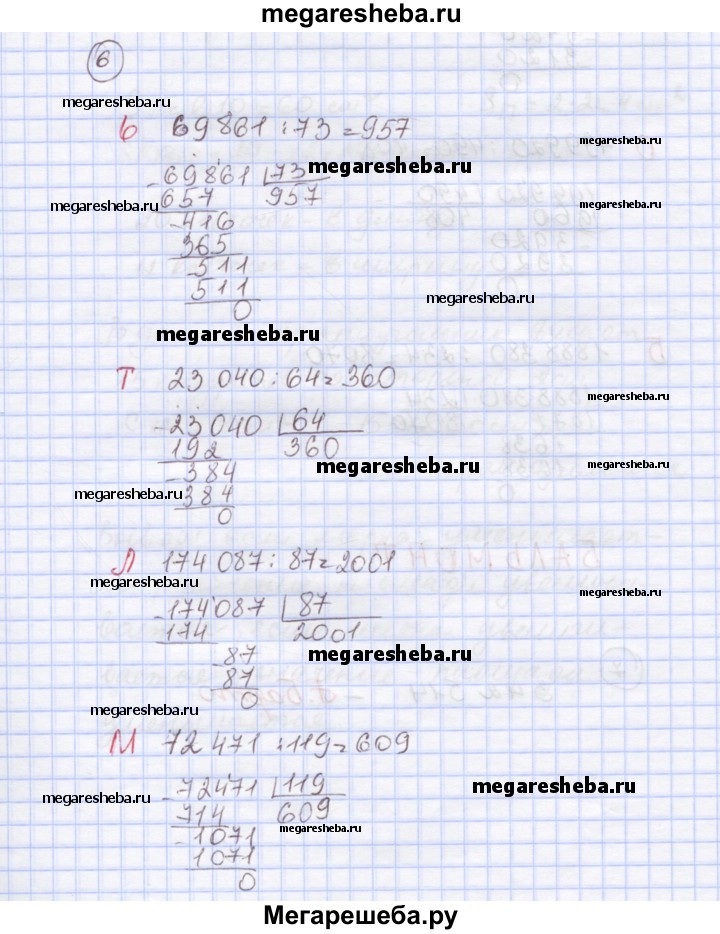 megaresheba.ru
6
megaresheba.ru
Ь 69861 : 73 = 957
megaresheba.ru
megaresheba.ru
-69861 73
megaresheba.ru
657 957
-416
365
-511
511
megaresheba.ru
0
megaresheba.ru
Т 23 040 : 64 = 360
megaresheba.ru
-23 040 64
192 360
megaresheba.ru
megaresheba.ru
-384
megaresheba.ru
384
0
Л 174 087 : 87 = 2001
megaresheba.ru
megaresheba.ru
-174 087 87
174 2001
-87
megaresheba.ru
87
0
megaresheba.ru
М 72 471 : 119 = 609
-72471 119
megaresheba.ru
megaresheba.ru
714 609
-1071
megaresheba.ru
1071
0
Мегарешеба.ру